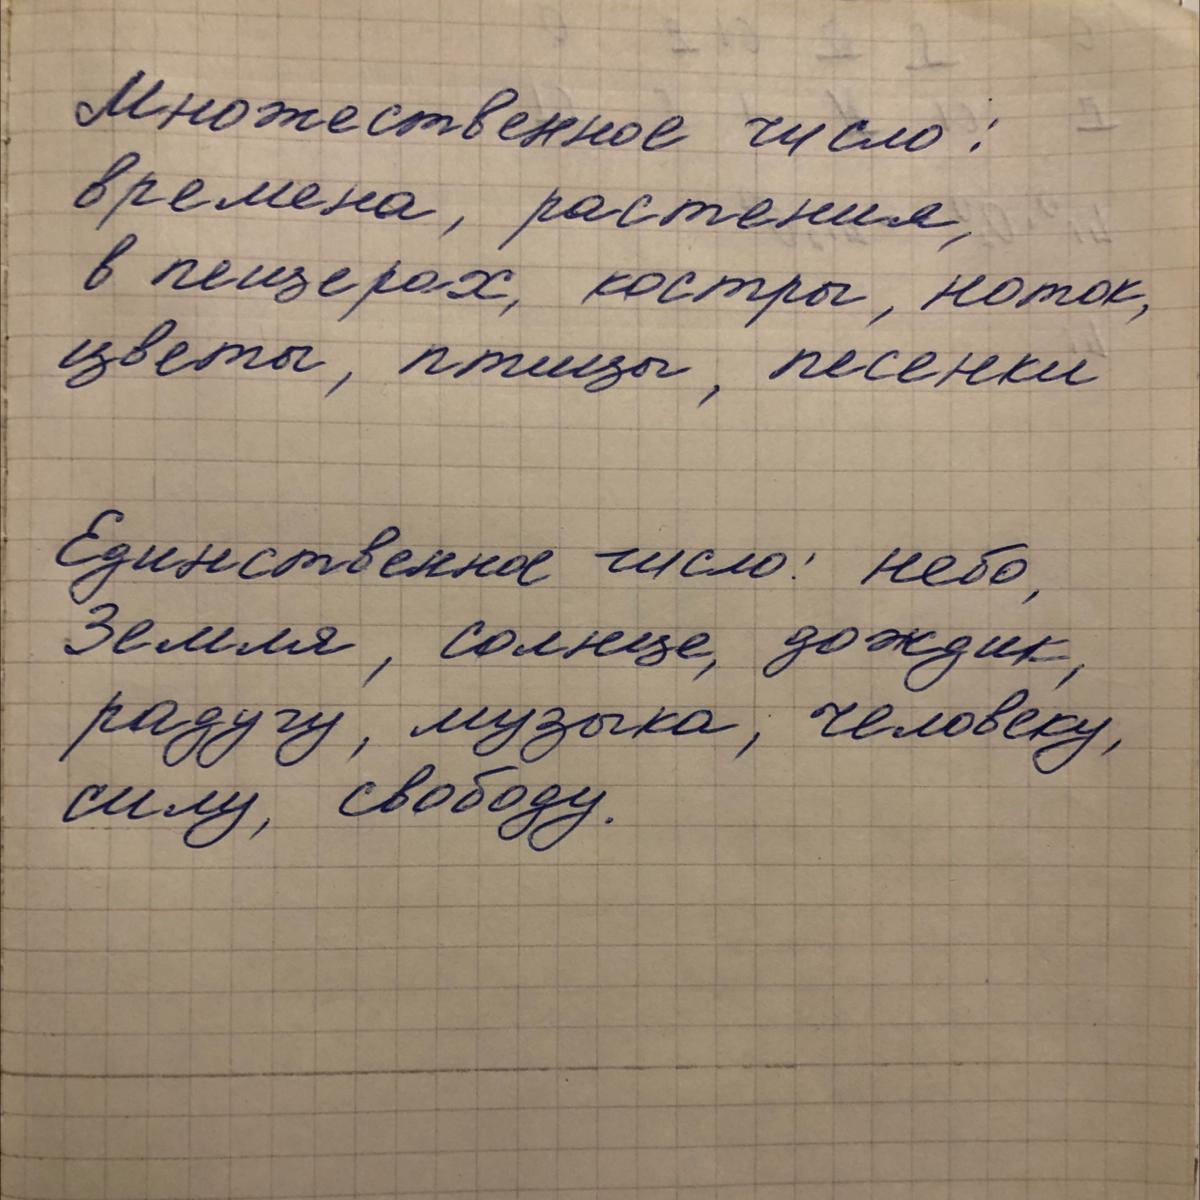 Множественное число:
времена, растения,
в пещерах, костры, ноток,
цветы, птицы, песенки
Единственное число: небо,
Земля, солнце, дождик,
радугу, музыка, человеку,
силу, свободу.